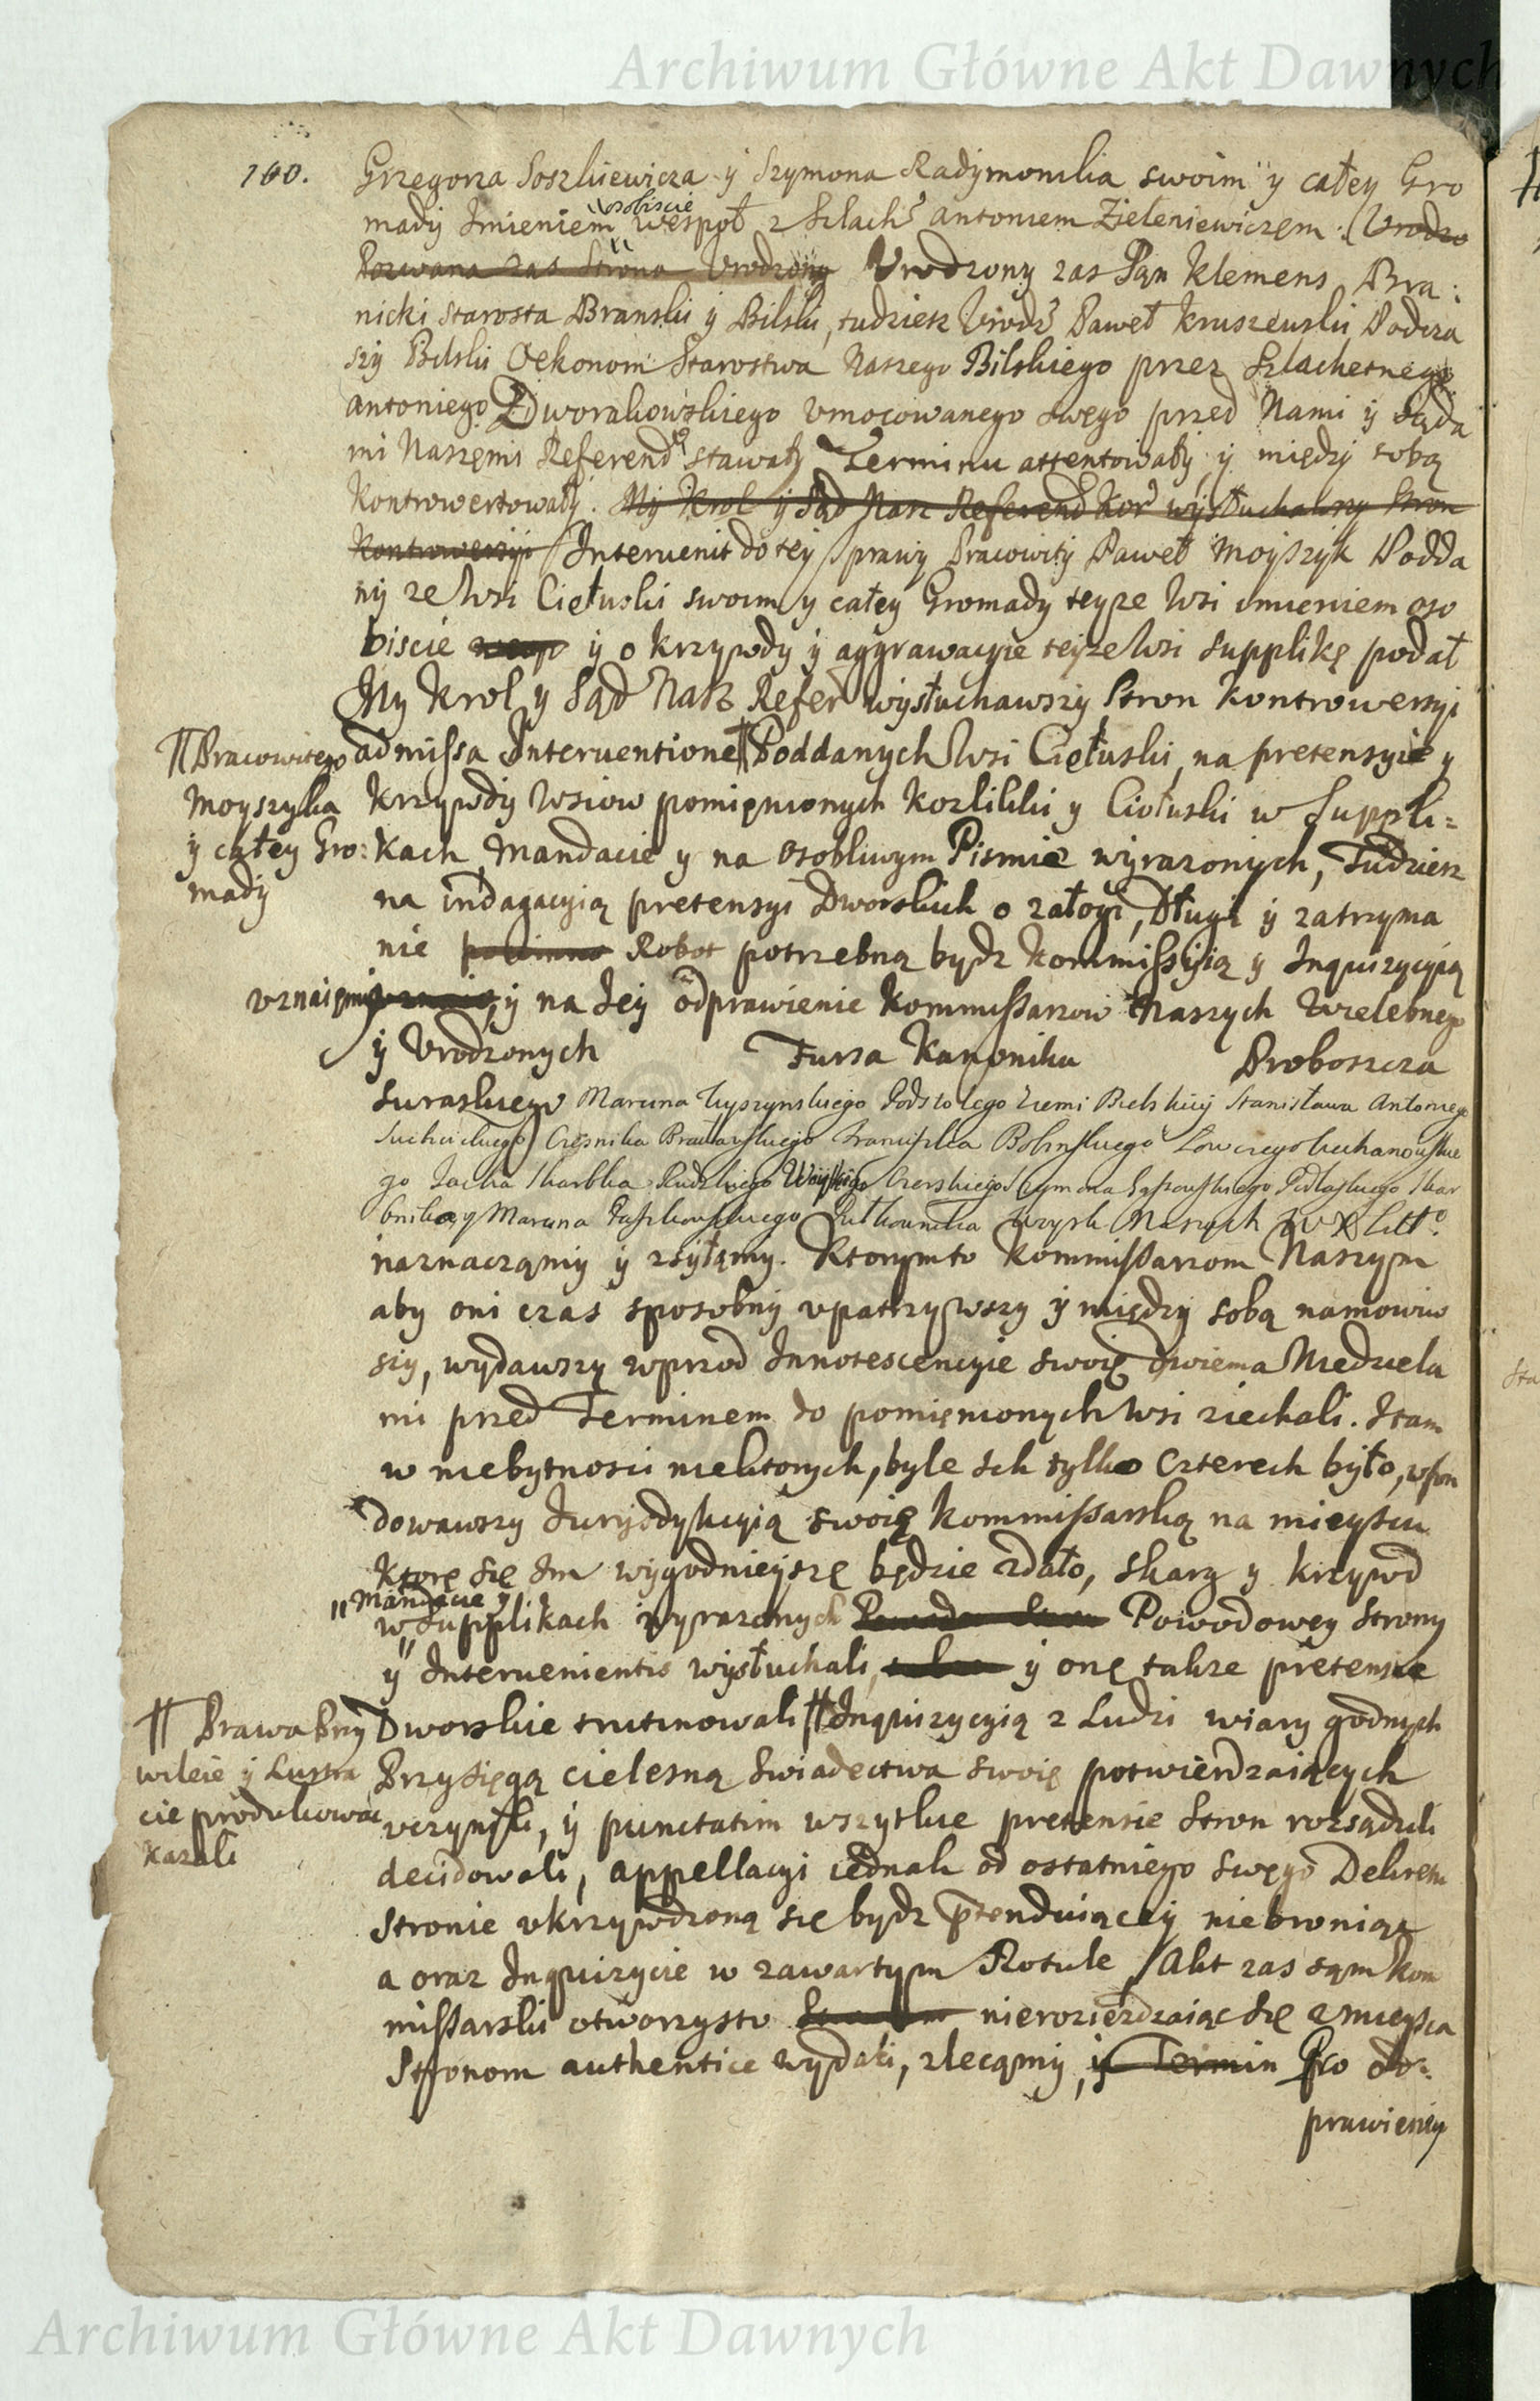 Archiwum Główne Akt Dawnych
100. Grzegorza Soszkiewicza y Szymona Radymonika swoim y całey Gro
osobiscie
mady Jmieniem wespoł z Szlach. Antoniem Zieleniewiczem. Urodzo
Pozwana zas Strona Urodzony Urodzony zas Pan Klemens Bra:
nicki Starosta Branski y Bilski, tudziesz Urodz. Paweł Kruszewski Podcza
szy Bilski Oekonom Starostwa Naszego Bilskiego przez Szlachetnego
Antoniego Dworakowskiego Vmocowanego swego przed Nami y Sąda
mi Naszemi Referend. stawały Terminu attentowały y między sobą
Kontrowertowały. My Krol y Sąd Nasz Referend. Kor. wysłuchawszy Stron
Kontrowersyi Interuenit do tey sprawy Pracowity Paweł Moyszyk Podda
ny ze Wsi Ciełuski swoim y całey Gromady teyze Wsi imieniem oso
biscie y o krzywdy y aggrawacyie teyze Wsi supplikę podał
My Krol y Sąd Nasz Refer. wysłuchawszy Stron Kontrowersyi
admissa Interuentione Poddanych Wsi Ciełuski, na pretensyie y
Pracowitego
Moyszyka
y całey Gro:
mady
krzywdy Wsiow pomienionych Kozlikki y Ciołuski w Suppli=
kach Mandacie y na osobliwym Pismie wyrazonych, Tudziesz
na indagacyią pretensyi Dworskich o załogi, Długi y zatrzyma
nie Robot potrzebną bydz Kommissyią y Inquizycyią
vznaiemy y na Jey odprawienie Kommissarzow Naszych Wielebnego
y Urodzonych Tursa Kanonika Proboszcza
Suraskiego Marcina Kuszynskiego Podstolego Ziemi Bielskiey Stanisława Antoniego
Suchcickiego Czesnika Bracławskiego Franciszka Bobinskiego Łowczego Ciechanowskie
go Jacka Skarbka Rudzkiego Woyskiego Czerskiego Szymona Podlaskiego Skar
bnika y Marcina Putkownika Woysk Naszych W X Litt.
naznaczamy y zsyłamy. Ktorymto Kommissarzom Naszym
aby oni czas sposobny vpatrzywszy y między sobą namowiw
sży, wydawszy wprzod Innotescencyie swoię dwiema Niedziela
mi przed Terminem do pomienionych Wsi ziechali. Itam
w niebytnosci niektorych, byle ich tylko czterech było, vfun
dowawszy Jurysdykcyią swoię Kommissarską na mieyscu
ktore się Jm wygodnieysze będzie zdało, skarg y krzywd
Mandacie y
w Supplikach wyrazonych Powodowey Strony
y Interuenientis wysłuchali, y onę także pretensie
Dworskie trutinowali Inquizycyią z Ludzi wiary godnych
Prawa Przy
wileie y Lustra
cie produkować
kazali
Przysięgą cielesną Swiadectwa swoię potwierdzaiących
vczynili, y punctatim wszytkie pretensie Stron rozsądzili
decidowali, appellacyi iednak od ostatniego swego Dekretu
Stronie vkrzywdzoną się bydz ptenduiącey niebroniąc
a oraz Inquizycie w zawartym Rotule, Akt zas sąm Kom
missarski otworzysto nierozieżdzaiąc się z mieysca
Stronom authentice wydali, zlecamy, y Termin Pro od:
prawieniey
Archiwum Główne Akt Dawnych